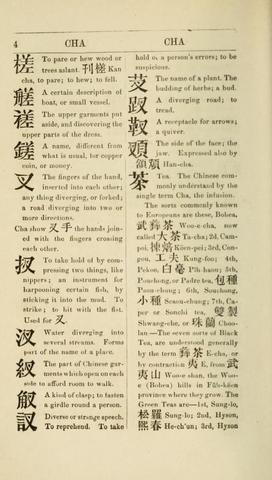 4 CHA CHA
槎 To pare or hew wood or
trees aslant. 刊槎 Kan
cha, to pare; to hew; to fell.
艖 A certain description of
boat, or small vessel.
The upper garments put
aside, and discovering the
upper parts of the dress.
鎈 A name, different from
what is usual, for copper
coin, or money.
叉 The fingers of the hand,
inserted into each other;
any thing diverging, or fork-
ed; a road diverging into two or
more directions.
Cha show 叉手 the hands join-
ed with the fingers crossing
each other.
扠 To take hold of by com-
pressing two things, like
nippers; an instrument for
harpooning certain fish, by
sticking it into the mud. To
strike; to hit with the fist.
Used for 叉.
汊 Water diverging into
several streams. Forms
part of the name of a place.
衩 The part of Chinese gar-
ments which open on each
side to afford room to walk.
A kind of clasp; to fasten
a girdle round a person.
訍 Diverse or strange speech.
To reprehend. To take
hold of a person's errors; to be
suspicious.
芆 The name of a plant. The
budding of herbs; a bud.
A diverging road; to
tread.
A receptacle for arrows;
a quiver.
The side of the face; the
jaw. Expressed also by
Han-cha.
茶 Tea. The Chinese com-
monly understand by the
single term Cha, the infusion.
The sorts commonly known
to Europeans are these, Bohea,
武彝茶 Woo-e cha, now
called 大茶 Ta-cha; 2d, Cam-
poi, 揀焙 Këen-pei; 3rd, Con-
gou, 工夫 Kung-foo; 4th,
Pekoe, 白毫 Pih haou; 5th,
Pouchong, or Padre tea, 包種
Paou-chung; 6th, Souchong,
小種 Seaou-chung; 7th, Ca-
per or Sonchi tea, 雙製
Shwang-che, or 珠蘭 Choo-
lan—The seven sorts of Black
Tea, are understood generally
by the term 彝茶 E-cha, or
by contraction 夷 E, from 武
夷山 Woo-e shan, the Woo-
e (Bohea) hills in Füh-këen
province where they grow. The
Green Teas are—1st, Sung-lo,
松羅 Sung-lo; 2nd, Hyson,
熙春 He-ch'un; 3rd, Hyson,